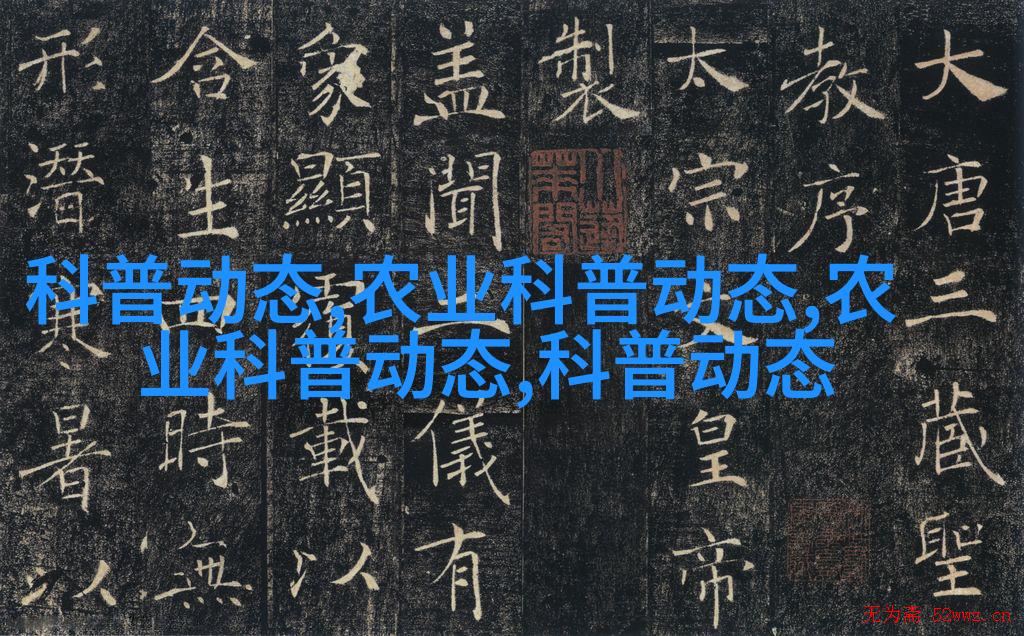 大唐三蔵聖
教序
太宗文皇帝
製
盖聞二儀有
象顯覆載以
含生四時無
形潛寒暑以
科普动态,农业科普动态,农
业科普动态,科普动态
无为斋 52wwz.cn